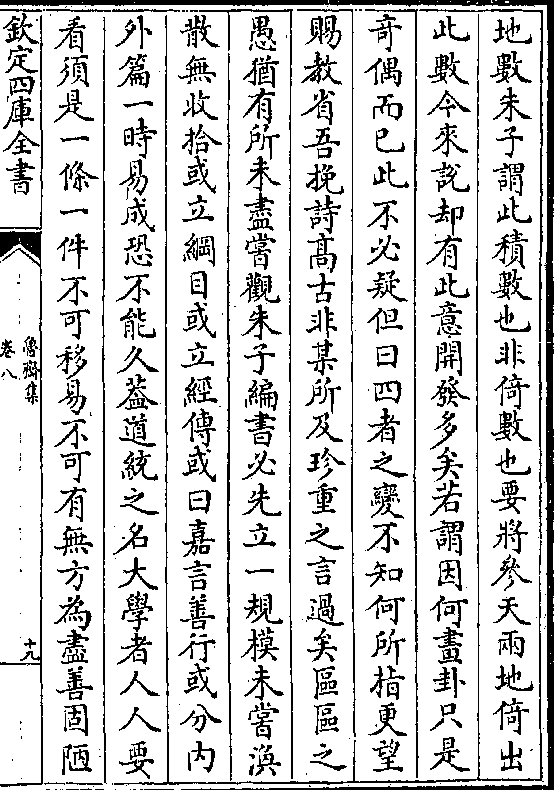 地數朱子謂此積數也非倚數也要將參天兩地倚出
此數今來説却有此意開發多矣若謂因何畫卦只是
竒偶而已此不必疑但曰四者之變不知何所指更望
賜教省吾挽詩髙古非某所及珍重之言過矣區區之
愚猶有所未盡嘗觀朱子編書必先立一規模未嘗渙
散無收拾或立綱目或立經傳或曰嘉言善行或分内
外篇一時易成恐不能久葢道統之名大學者人人要
看須是一條一件不可移易不可有無方為盡善固陋
欽定四庫全書
魯齋集
卷八
十九